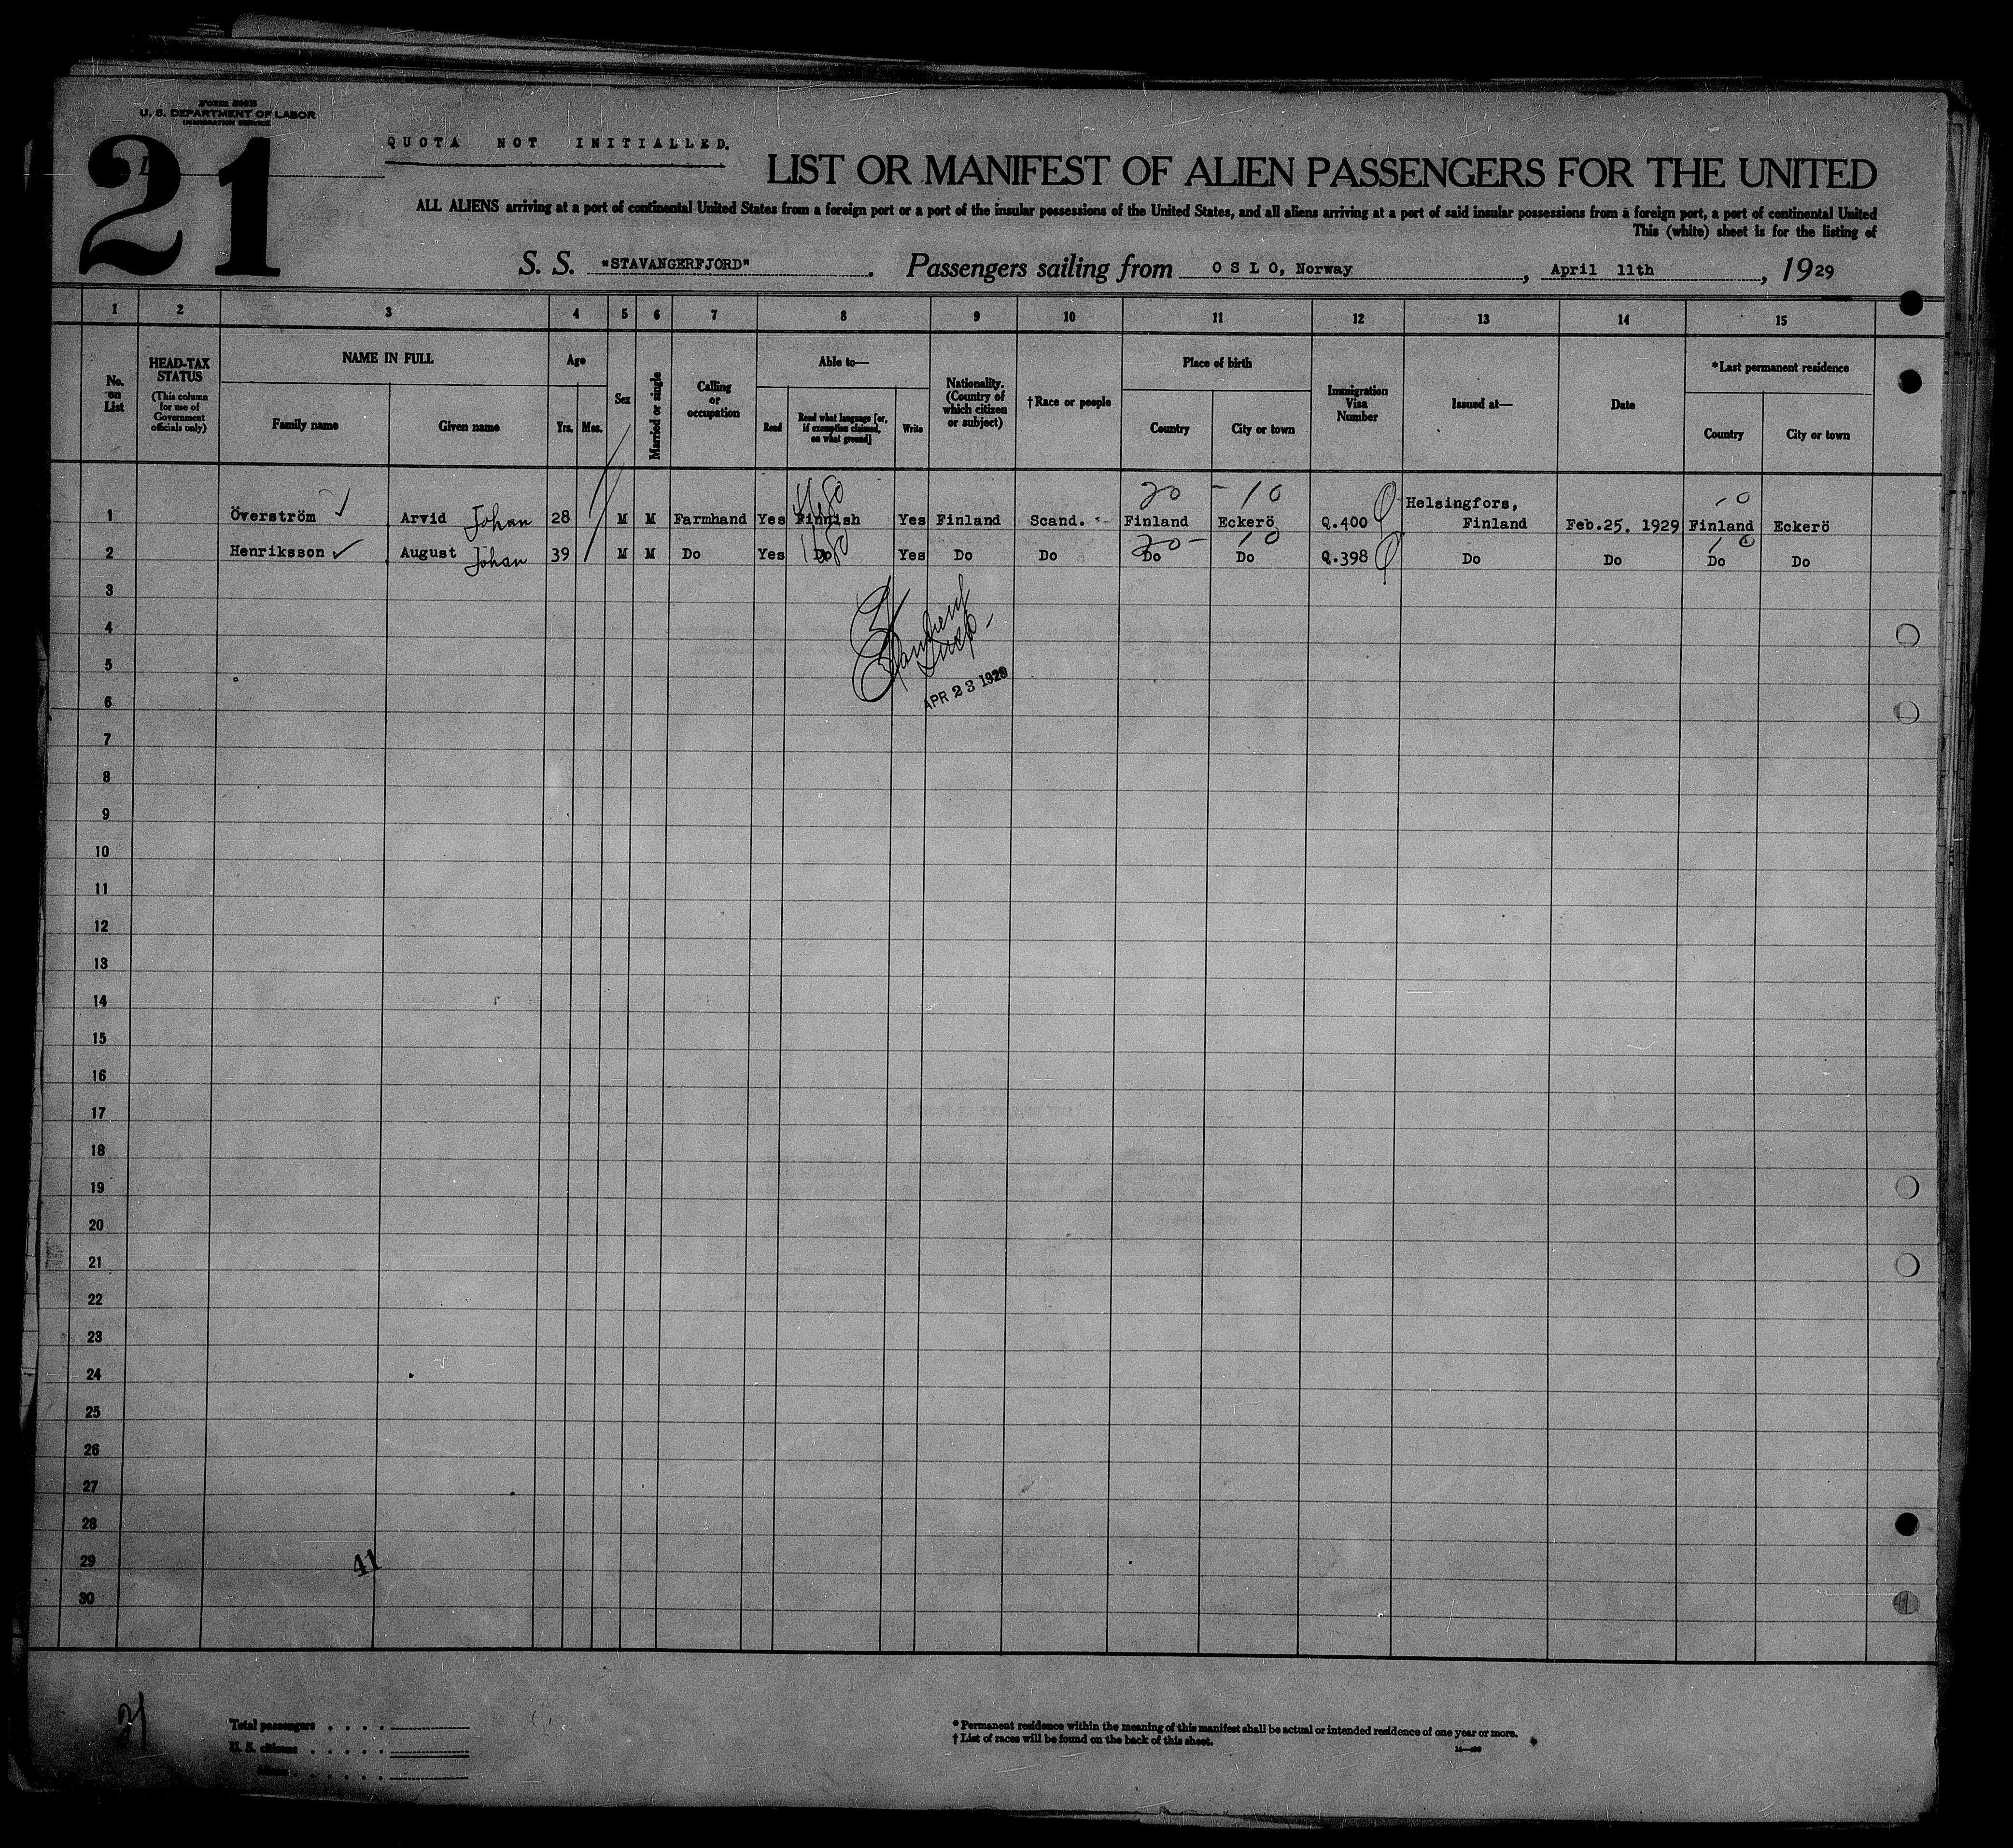 Form 500B
U. S. DEPARTMENT OF LABOR
IMMIGRATION SERVICE
21
QUOTA NOT INITIALLED.
LIST OR MANIFEST OF ALIEN PASSENGERS FOR THE UNITED
ALL ALIENS arriving at a port of continental United States from a foreign port or a port of the insular possessions of the United States, and all aliens arriving at a port of said insular possessions from a foreign port, a port of continental United
This (white) sheet is for the listing of
S. S. "STAVANGERFJORD". Passengers sailing from OSLO, Norway, April 11th, 1929
1 2 3 4 5 6 7 8 9 10 11 12 13 14 15
No. on List
HEAD-TAX STATUS
(This column for use of Government officials only)
NAME IN FULL
Family name
Given name
Age
Yrs.
Mos.
Sex
Married or single
Calling or occupation
Able to—
Read
Read what language [or, if exemption claimed, on what ground]
Write
Nationality. (Country of which citizen or subject)
†Race or people
Place of birth
Country
City or town
Immigration Visa Number
Issued at—
Date
*Last permanent residence
Country
City or town
20 - 10 10
1 Överström Arvid Johan 28 M M Farmhand Yes Finnish Yes Finland Scand. Finland Eckerö Q.400 Helsingfors, Finland Feb.25. 1929 Finland Eckerö
20- 10 10
2 Henriksson August Johan 39 M M Do Yes Do Yes Do Do Do Do Q.398 Do Do Do Do
3
4
5
APR 23 1929
6
7
8
9
10
11
12
13
14
15
16
17
18
19
20
21
22
23
24
25
26
27
28
29 41
30
21
Total passengers
U. S. citizens
Aliens
* Permanent residence within the meaning of this manifest shall be actual or intended residence of one year or more.
† List of races will be found on the back of this sheet.